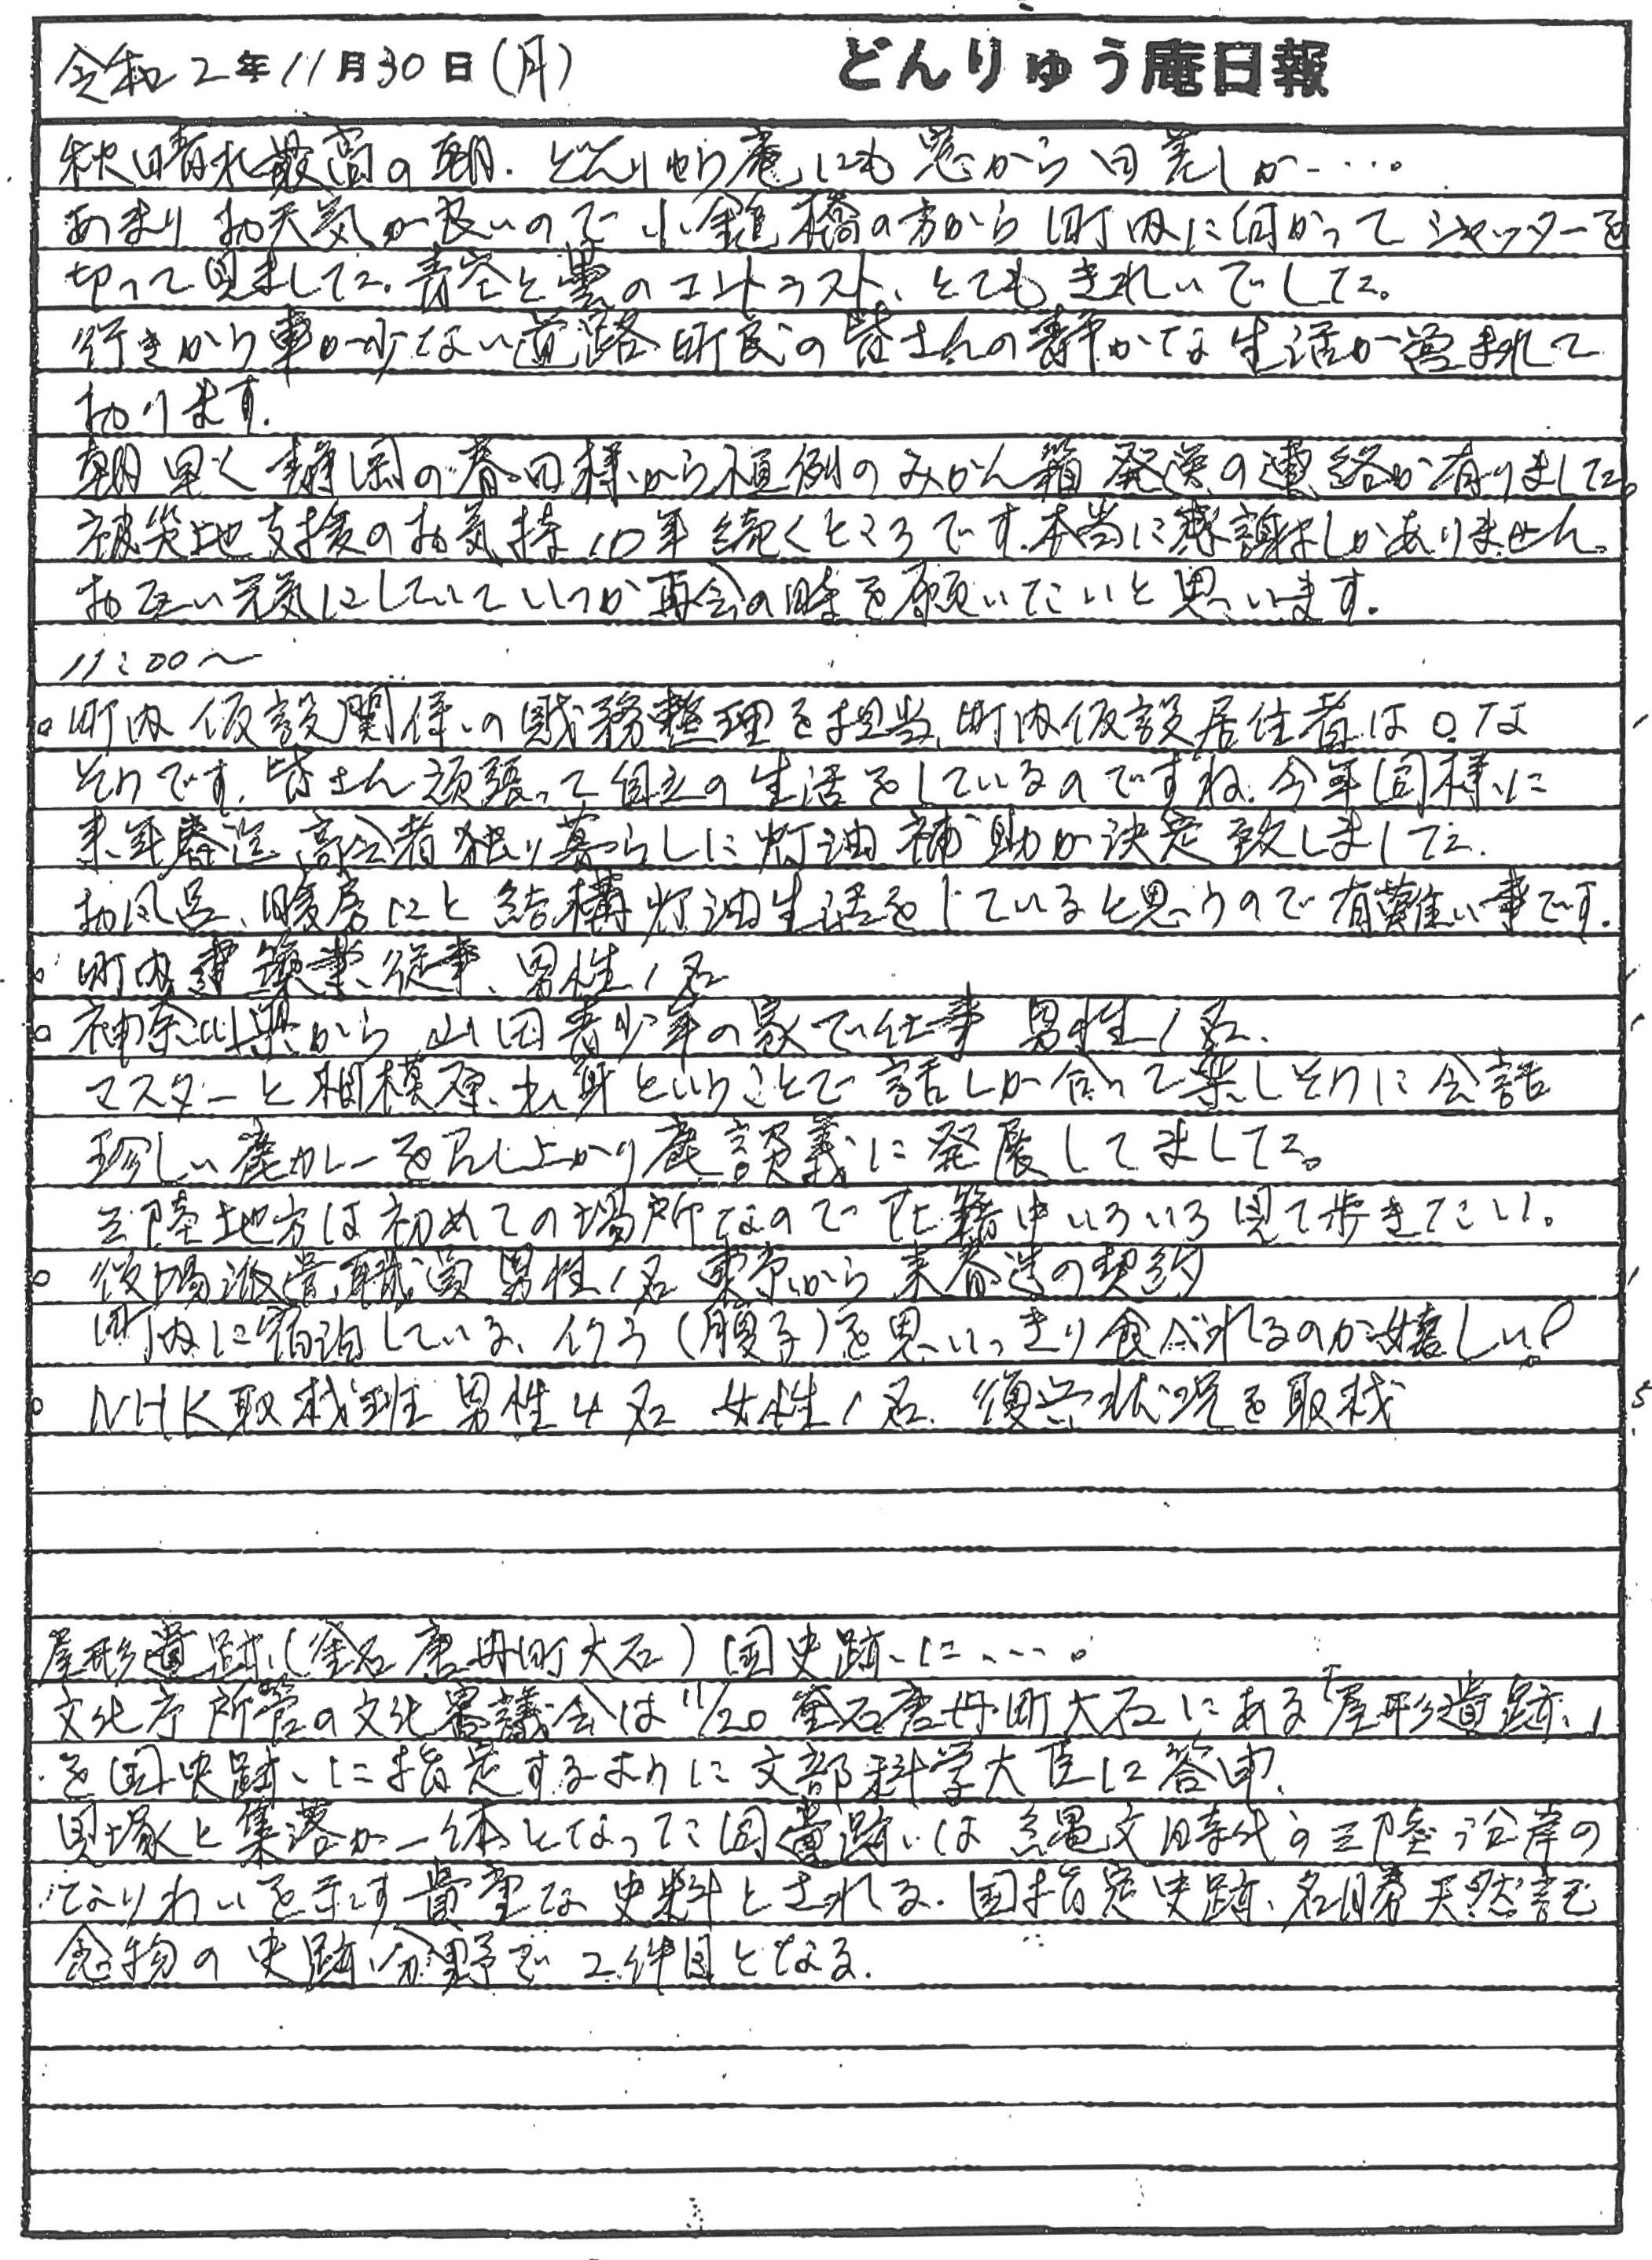 令和2年11月30日(月) どんりゅう庵日報
秋晴れ最高の朝.どんりゅう庵にも窓から日差しが….。
あまりお天気が良いので小鎚橋の方から町内に向かってシャッターを
切って見ました。青空と雲のコントラスト、とてもきれいでした。
行きかう車が少ない道路町民の皆さんの静かな生活が営まれて
おります.
朝早く静岡の春田様から恒例のみかん箱発送の連絡が有りました。
被災地支援のお気持10年続くところです.本当に感謝しかありません。
お互い元気にしていていつか再会の時を願いたいと思います.
11:00〜
○町内仮設関係の財務整理を担当,町内仮設居住者は0な
そうです.皆さん頑張って自立の生活をしているのですね.今年同様に
来年春迄高令者独り暮らしに灯油補助が決定致しました.
お風呂、暖房にと結構灯油生活をしていると思うので有難い事です.
○町内建築業従事、男性1名
○神奈川県から山田青少年の家で仕事 男性1名.
マスターと相模原出身ということで話しが合って楽しそうに会話
珍しい鹿カレーを召し上がり鹿談義に発展してました。
三陸地方は初めての場所なので在籍中いろいろ見て歩きたい。
○役場派遣職員男性1名東京から来春迄の契約
町内に宿泊している、イクラ(腹子)を思いっきり食べれるのが嬉しい!
○NHK取材班 男性4名 女性1名.復興状況を取材
屋形遺跡(釜石唐丹町大石)国史跡に….。
文化庁所管の文化審議会は11/20釜石唐丹町大石にある「屋形遺跡」
を国史跡に指定するように文部科学大臣に答申.
貝塚と集落が一体となった同遺跡は縄文時代の三陸沿岸の
なりわいを示す貴重な史料とされる.国指定史跡、名勝天然記
念物の史跡分野で2件目となる.